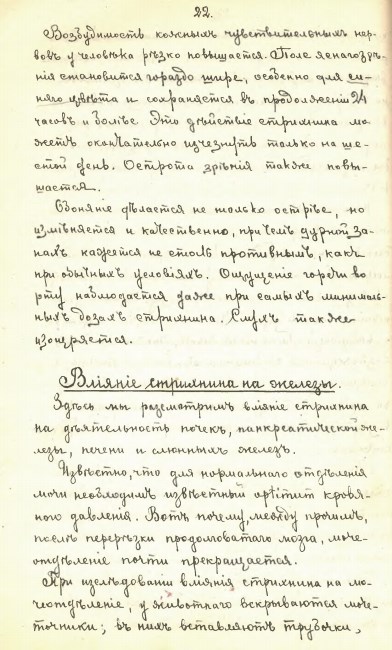 22.
Возбудимость кожныхъ чувствительныхъ нер-
вовъ у человѣка рѣзко повышается. Поле яснаго зрѣ-
нія становится гораздо шире, особенно для си-
няго цвѣта и сохраняется въ продолженіи 24
часовъ и болѣе. Это дѣйствіе стрихнина мо-
жетъ окончательно изчезнуть только на ше-
стой день. Острота зрѣнія также повы-
шается.
Обоняніе дѣлается не только острѣе, но
измѣняется и качественно, при чемъ дурной за-
пахъ кажется не столь противнымъ, какъ
при обычныхъ условіяхъ. Ощущеніе горечи во
рту наблюдается даже при самыхъ минималь-
ныхъ дозахъ стрихнина. Слухъ также
изощряется.
Вліяніе стрихнина на железы.
Здѣсь мы разсмотримъ вліяніе стрихнина
на дѣятельность почекъ, панкреатической же-
лезы, печени и слюнныхъ железъ.
Извѣстно, что для нормальнаго отдѣленія
мочи необходимъ извѣстный optimum кровя-
ного давленія. Вотъ почему, между прочимъ,
послѣ перерѣзки продолговатаго мозга, моче-
отдѣленіе почти прекращается.
При изслѣдовании вліянія стрихнина на мо-
чеотдѣленіе, у животнаго вскрываются моче-
точники; въ нихъ вставляютъ трубочки,